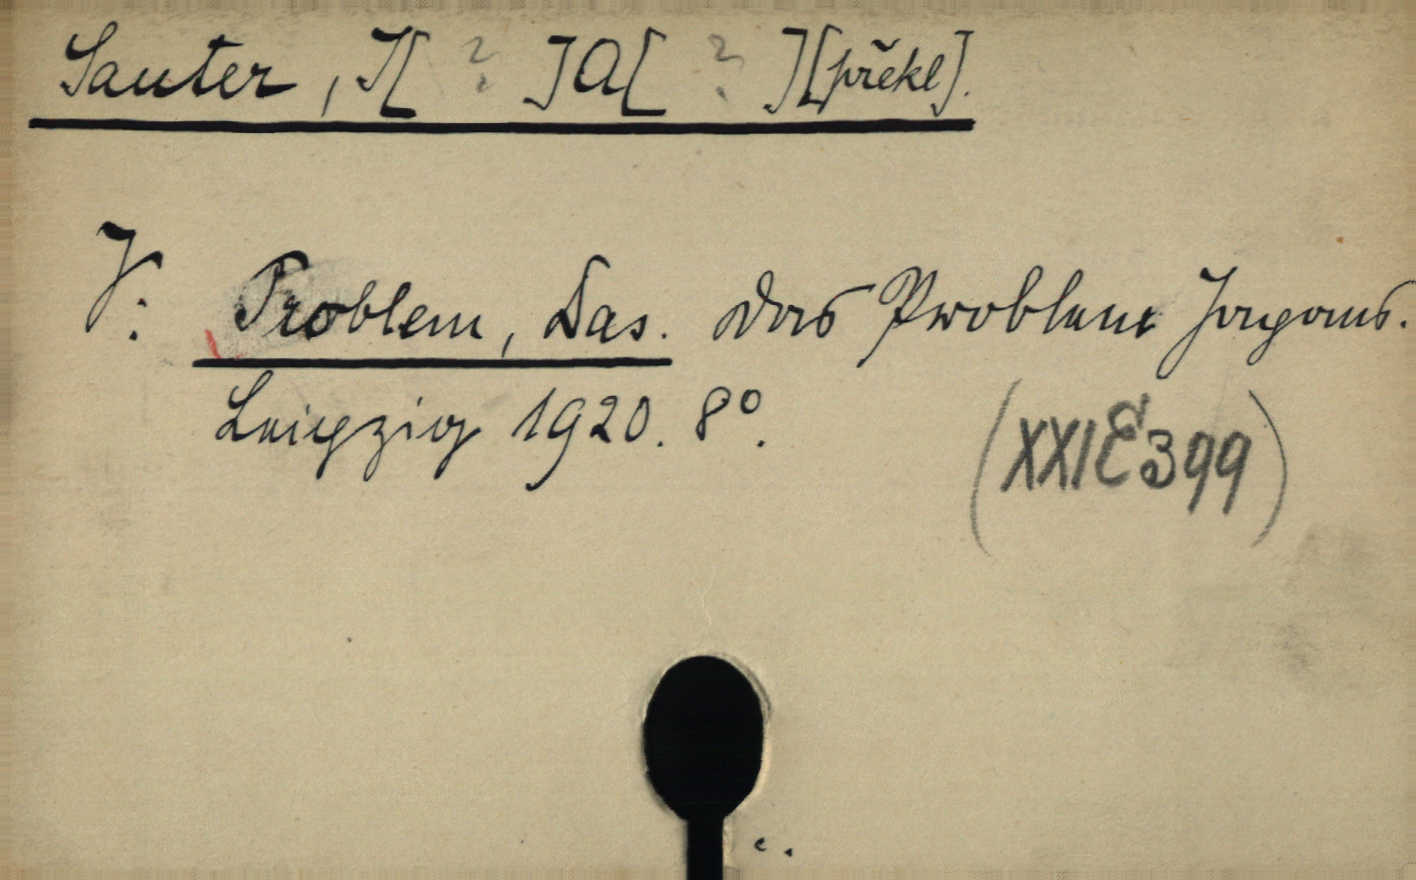 Sauter, J[ ? ]A[ ? ][překl].
V: Problem, Das. Das Problem Japans.
Leipzig 1920. 8°.
(XXI E 399)